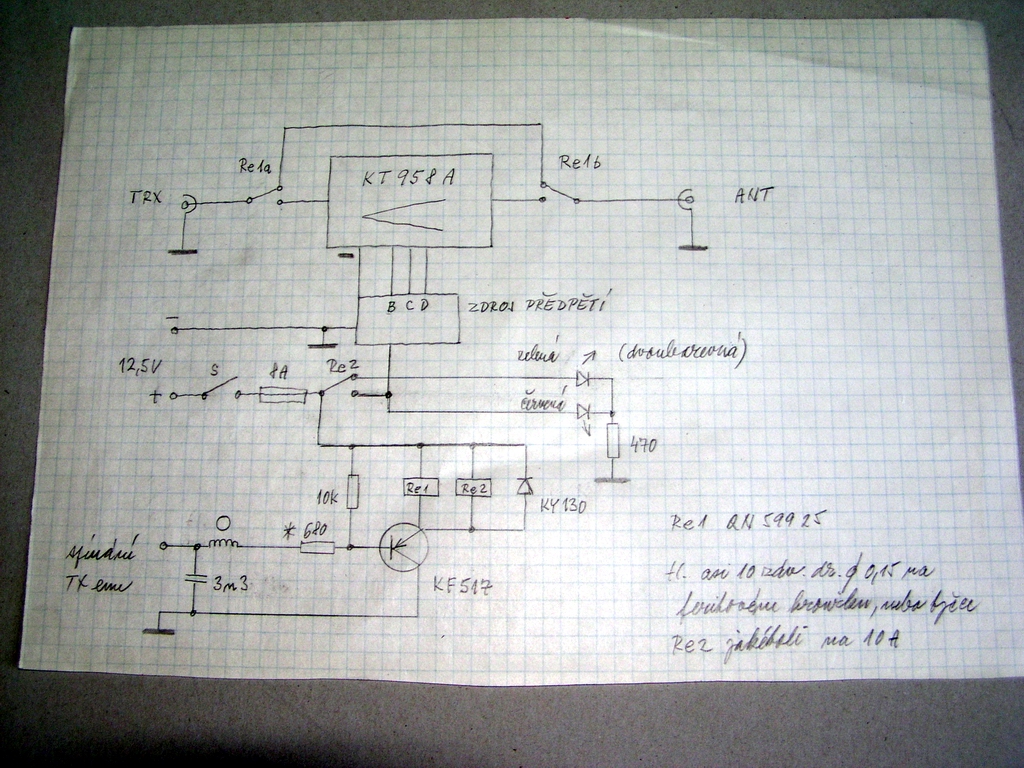 Re1a
Re1b
KT 958 A
TRX
ANT
B C D
ZDROJ PŘEDPĚTÍ
−
12,5V
S
8A
Re2
zelená
(dvoubarevná)
+
červená
470
10k
Re1
Re2
KY130
* 680
spínání
TX eme
3n3
KF517
Re1 QN 599 25
tl. asi 10 záv. dr. ϕ 0,15 na
feritovém kroužku, nebo tyčce
Re2 jakékoli na 10A